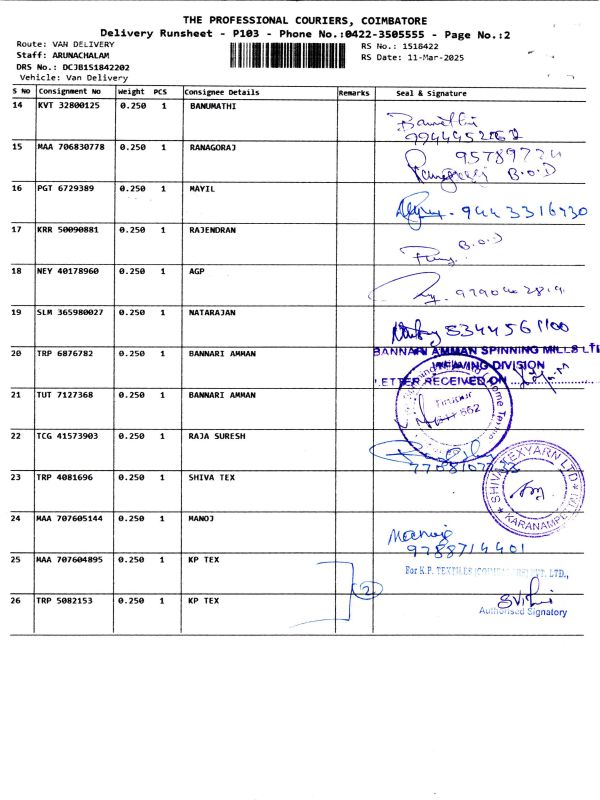 THE PROFESSIONAL COURIERS, COIMBATORE
Delivery Runsheet - P103 - Phone No.:0422-3505555 - Page No.:2
Route: VAN DELIVERY
RS No.: 1518422
Staff: ARUNACHALAM
RS Date: 11-Mar-2025
DRS No.: DCJB151842202
Vehicle: Van Delivery
S No Consignment No Weight PCS Consignee Details Remarks Seal & Signature
14 KVT 32800125 0.250 1 BANUMATHI
15 MAA 706830778 0.250 1 RANAGORAJ
B.O.D
16 PGT 6729389 0.250 1 MAYIL
9443316930
17 KRR 50090881 0.250 1 RAJENDRAN
B.O.D
18 NEY 40178960 0.250 1 AGP
19 SLM 365980027 0.250 1 NATARAJAN
20 TRP 6876782 0.250 1 BANNARI AMMAN
BANNARI AMMAN SPINNING MILLS LTD
WEAVING DIVISION
LETTER RECEIVED ON
21 TUT 7127368 0.250 1 BANNARI AMMAN
22 TCG 41573903 0.250 1 RAJA SURESH
23 TRP 4081696 0.250 1 SHIVA TEX
SHIVA TEXYARN LTD
KARANAMPET
24 MAA 707605144 0.250 1 MANOJ
9788714401
25 MAA 707604895 0.250 1 KP TEX
2
26 TRP 5082153 0.250 1 KP TEX
For K.P. TEXTILES PVT. LTD.,
Authorised Signatory